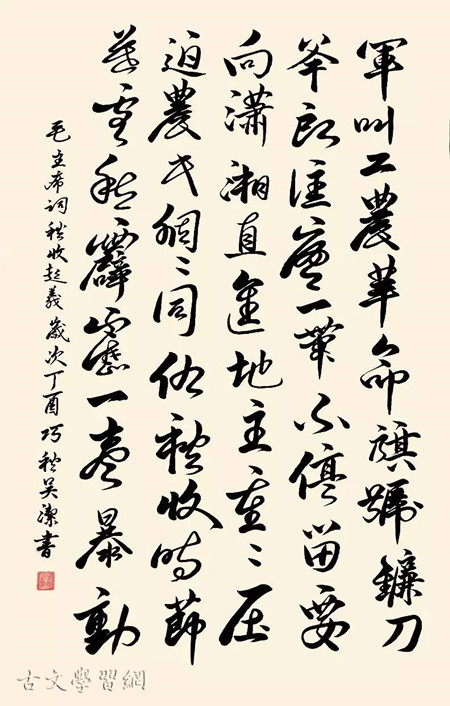 軍叫工農革命旗號鐮刀
斧頭匡廬一帶不停留要
向瀟湘直進地主重〻压
迫農民個〻同仇秋收時節
暮雲愁霹靂一聲暴動
毛主席詞秋收起義歲次丁酉巧秋吴潔書
古文學習網